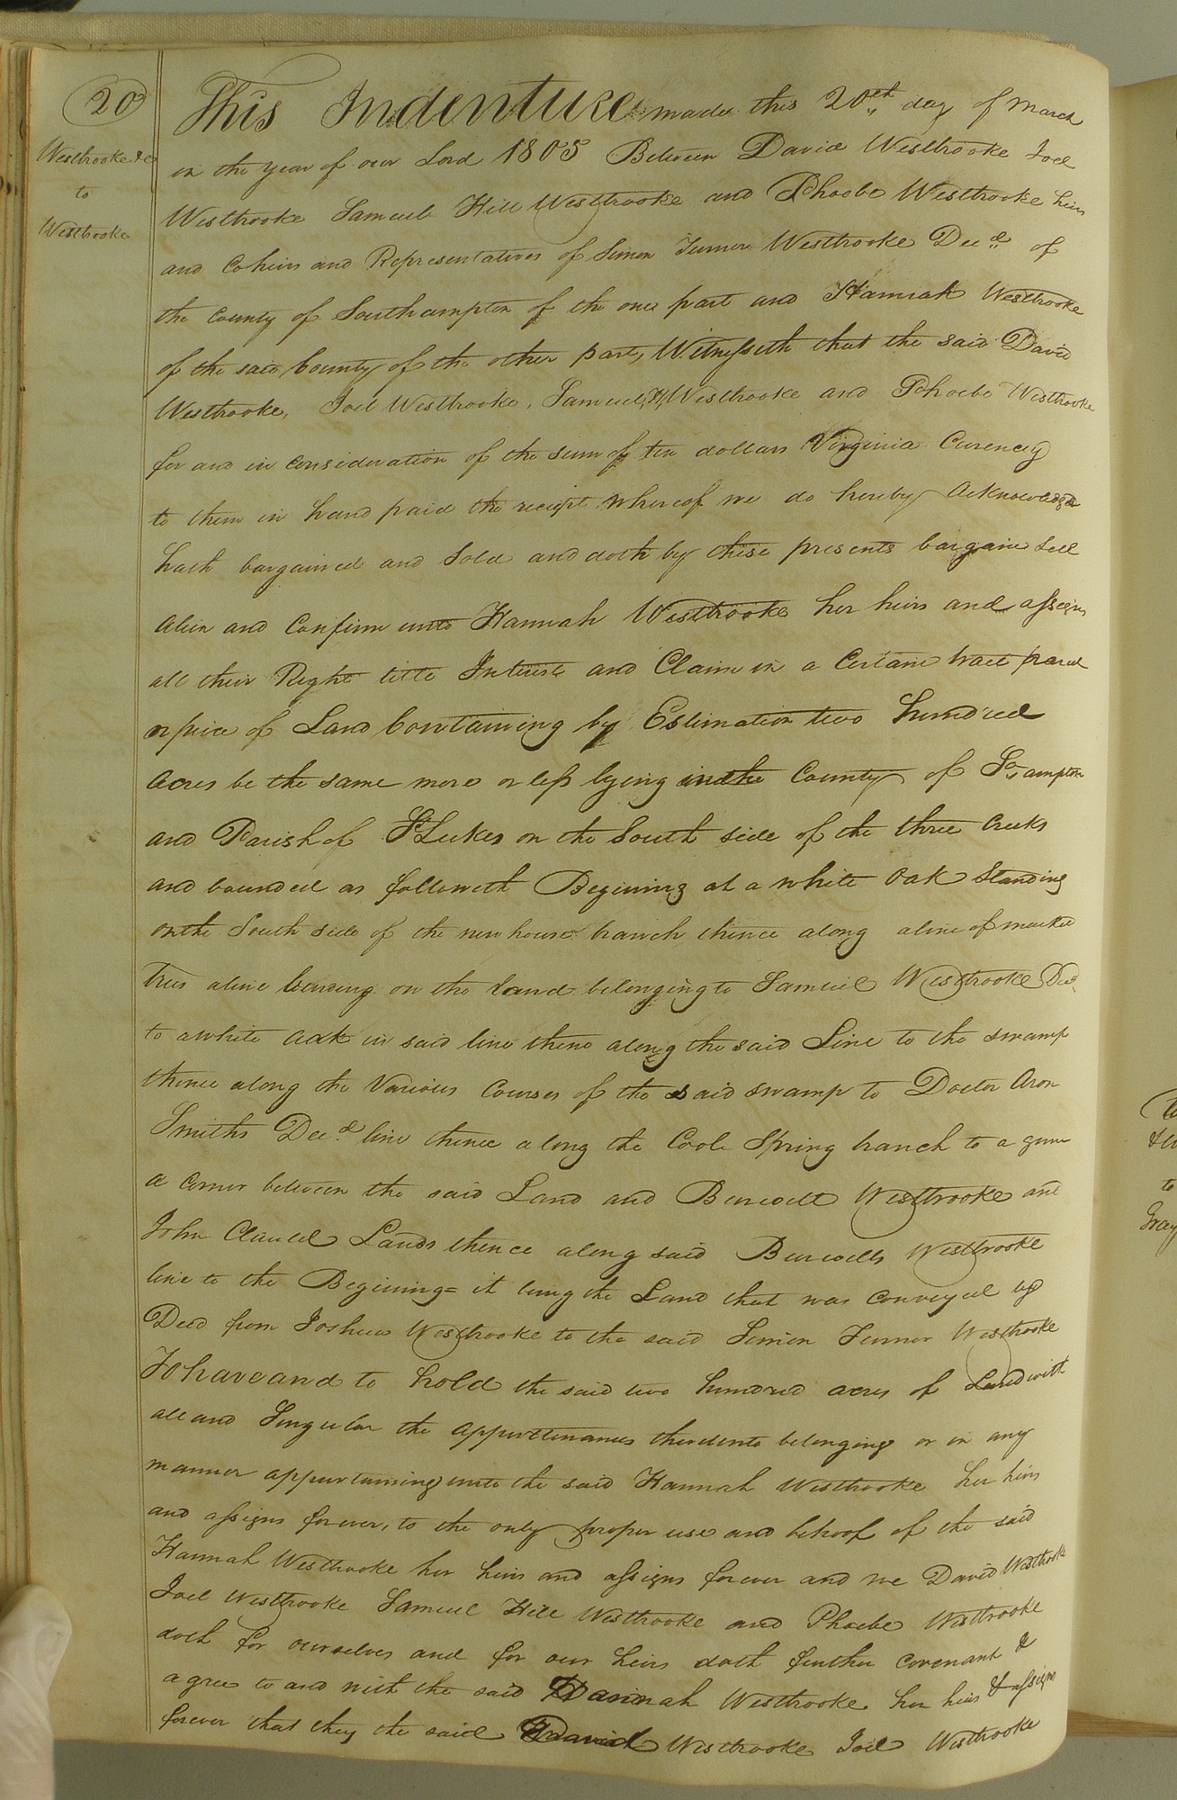 20
Westbrooke &c
to
Westbrooke
This Indenture made this 20th day of March
in the year of our Lord 1805 Between David Westbrooke Joel
Westbrooke Samuel Hill Westbrooke and Phoebe Westbrooke heirs
and Coheirs and Representatives of Simon Turner Westbrooke Decd of
the County of Southampton of the one part and Hannah Westbrooke
of the said County of the other part, Witnesseth that the said David
Westbrooke, Joel Westbrooke, Samuel H, Westbrooke and Phoebe Westbrooke
for and in consideration of the sum of ten dollars Virginia Curency
to them in hand paid the receipt whereof we do hereby Acknowledge
hath bargained and Sold and doth by these presents bargain Sell
alien and Confirm unto Hannah Westbrooke her heirs and assigns
all their Right title Interest and Claim in a Certain tract parcel
or piece of Land Containing by Estimation two hundred
acres be the same more or less lying in the County of So,ampton
and Parish of St Lukes on the South side of the three Creeks
and bounded as followeth Begining at a white Oak Standing
on the South side of the new house branch thence along a line of marked
trees a line bearing on the land belonging to Samuel Westbrooke Decd
to a white oak in said line thence along the said Line to the swamp
thence along the Various Courses of the said swamp to Doctor Aron
Smiths Decd line thence along the Cool Spring branch to a gum
a corner between the said Land and Burwell Westbrooke and
John Claud Lands thence along said Burwells Westbrooke
line to the Begining = it being the Land that was conveyed by
Deed from Joshua Westbrooke to the said Simon Turner Westbrooke
To have and to hold the said two hundred acres of Land with
all and Singular the appurtenances thereunto belonging or in any
manner appurtaining unto the said Hannah Westbrooke her heirs
and assigns forever, to the only proper use and behoof of the said
Hannah Westbrooke her heirs and assigns forever and we David Westbrooke
Joel Westbrooke Samuel Hill Westbrooke and Phoebe Westbrooke
doth for ourselves and for our heirs doth further covenant &
agree to and with the said Hannah Westbrooke her heirs & assigns
forever that they the said David Westbrooke Joel Westbrooke
to
Gray